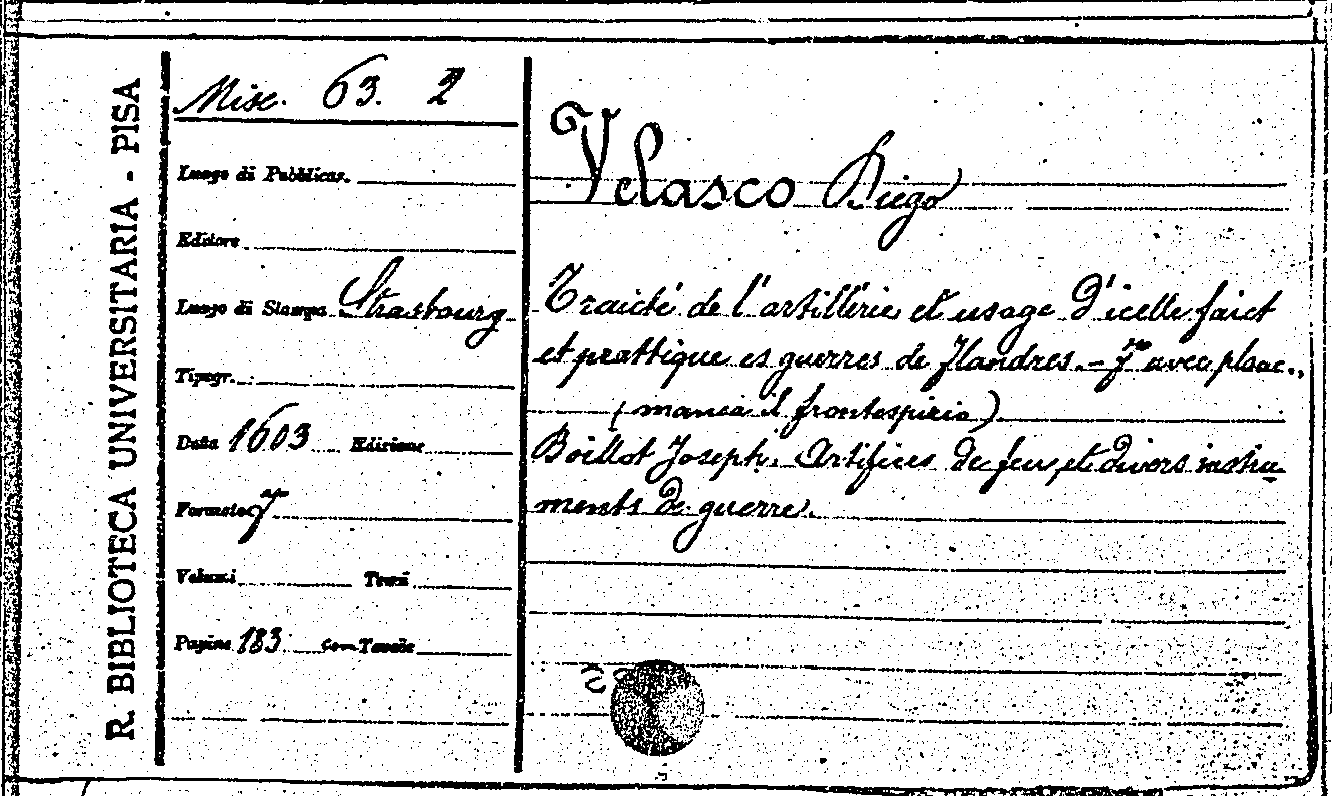 R. BIBLIOTECA UNIVERSITARIA - PISA
Misc. 63. 2
Luogo di Pubblicaz.
Editore
Luogo di Stampa Strasbourg
Tipogr.
Data 1603 Edizione
Formato f
Volumi Tomi
Pagine 183 con Tavole
Velasco Diego
Traicté de l'artillérie et usage d'icelle faict
et prattique es guerres de Flandres. - avec plac.,
(manca il frontespizio)
Boillot Joseph. Artifices de feu, et divers instru-
ments de guerre.